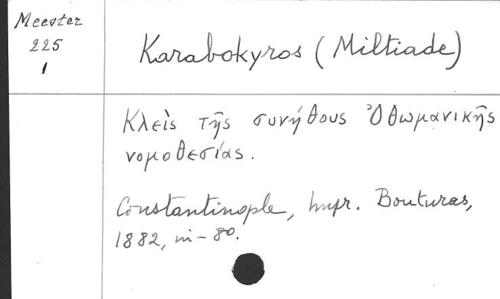 Meester
225
1
Karabokyros (Miltiade)
Κλεὶς τῆς συνήθους Ὀθωμανικῆς
νομοθεσίας.
Constantinople, Impr. Bouturas,
1882, in-8º.